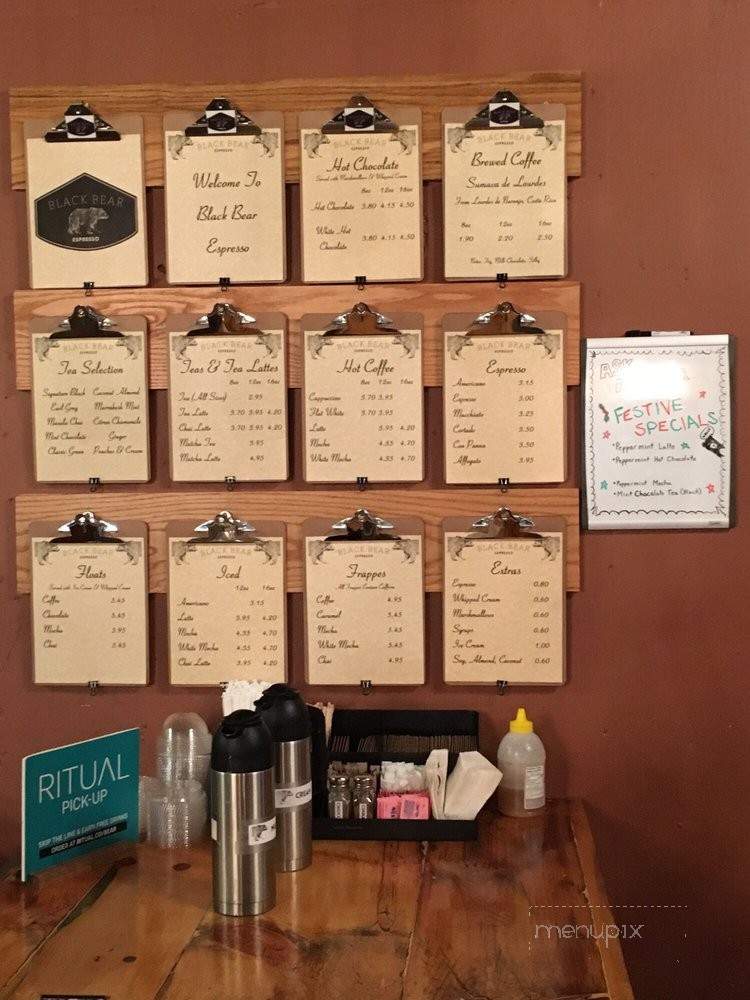 BLACK BEAR
ESPRESSO
BLACK BEAR
ESPRESSO
Welcome To
Black Bear
Espresso
BLACK BEAR
ESPRESSO
Hot Chocolate
Served with Marshmallows & Whipped Cream
8oz 12oz 16oz
Hot Chocolate 3.80 4.15 4.50
White Hot
Chocolate 3.80 4.15 4.50
BLACK BEAR
ESPRESSO
Brewed Coffee
Sumava de Lourdes
From Lourdes de Naranjo, Costa Rica
8oz 12oz 16oz
1.90 2.20 2.50
Milk Chocolate, Silky
BLACK BEAR
ESPRESSO
Tea Selection
Signature Black Coconut Almond
Earl Grey Marrakesh Mint
Masala Chai Citron Chamomile
Mint Chocolate Ginger
Classic Green Peaches & Cream
BLACK BEAR
ESPRESSO
Teas & Tea Lattes
8oz 12oz 16oz
Tea (All Sizes) 2.95
Tea Latte 3.70 3.95 4.20
Chai Latte 3.70 3.95 4.20
Matcha Tea 3.95
Matcha Latte 4.95
BLACK BEAR
ESPRESSO
Hot Coffee
8oz 12oz 16oz
Cappuccino 3.70 3.95
Flat White 3.70 3.95
Latte 3.95 4.20
Mocha 4.35 4.70
White Mocha 4.35 4.70
BLACK BEAR
ESPRESSO
Espresso
Americano 3.15
Espresso 3.00
Macchiato 3.25
Cortado 3.50
Con Panna 3.50
Affogato 3.95
FESTIVE
SPECIALS
• Peppermint Latte
• Peppermint Hot Chocolate
• Peppermint Mocha
• Mint Chocolate Tea (Black)
BLACK BEAR
ESPRESSO
Floats
Served with Ice Cream & Whipped Cream
Coffee 5.45
Chocolate 5.45
Mocha 5.95
Chai 5.45
BLACK BEAR
ESPRESSO
Iced
12oz 16oz
Americano 3.15
Latte 3.95 4.20
Mocha 4.35 4.70
White Mocha 4.35 4.70
Chai Latte 3.95 4.20
BLACK BEAR
ESPRESSO
Frappes
All Frappes Contain Caffeine
Coffee 4.95
Caramel 5.45
Mocha 5.45
White Mocha 5.45
Chai 4.95
BLACK BEAR
ESPRESSO
Extras
Espresso 0.80
Whipped Cream 0.60
Marshmallows 0.60
Syrups 0.60
Ice Cream 1.00
Soy, Almond, Coconut 0.60
RITUAL
PICK-UP
SKIP THE LINE & EARN FREE DRINKS
ORDER AT RITUAL.CO/BEAR
CREAM
menupix